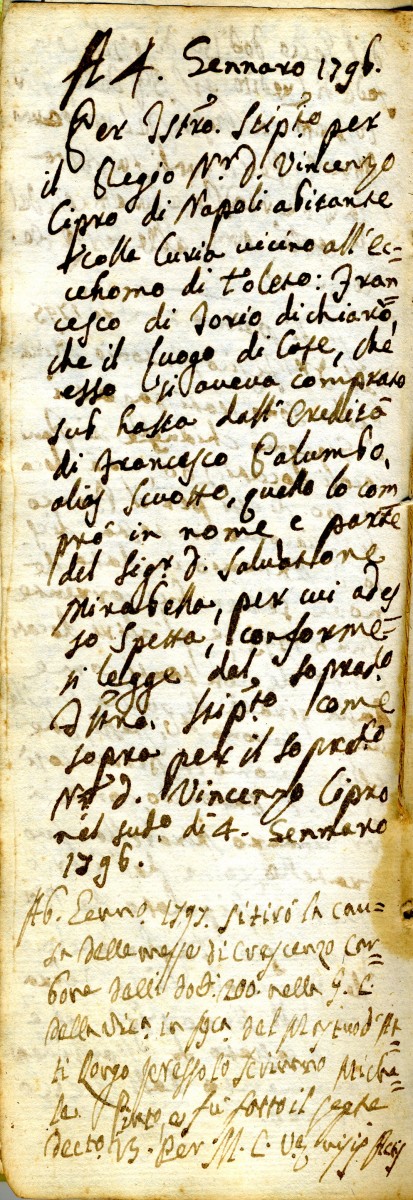 A 4. Gennaro 1796.
Per Istro. Stip.to per
il Regio N.r D. Vincenzo
Cipro di Napoli abitante
colla Curia vicino all'ec=
cehomo di Toleto: Fran=
cesco di Iorio dichiarò,
che il luogo di Case, che
esso si aveva comprato
sub hasta dall'Eredità
di Francesco Palumbo,
alias Scuotto, quello lo com
prò in nome e parte
del Sig.r D. Salvatore
Mirabella, per cui ades
so spetta, conforme
si legge dal soprad.o
Istro. Stip.to come
sopra per il soprad.o
N.r D. Vincenzo Cipro
nel sud.o dì 4. Gennaro
1796.
A 6. Genn.o 1797. si tirò la cau=
sa delle messe di Crescenzo Car=
bone dalli doc.i 200. nella G. C.
della Vic.a in del At=
ti presso lo scrivano Miche=
le Pinto, e fu fatto il
Decto. Per M. C. V.e visis Actis